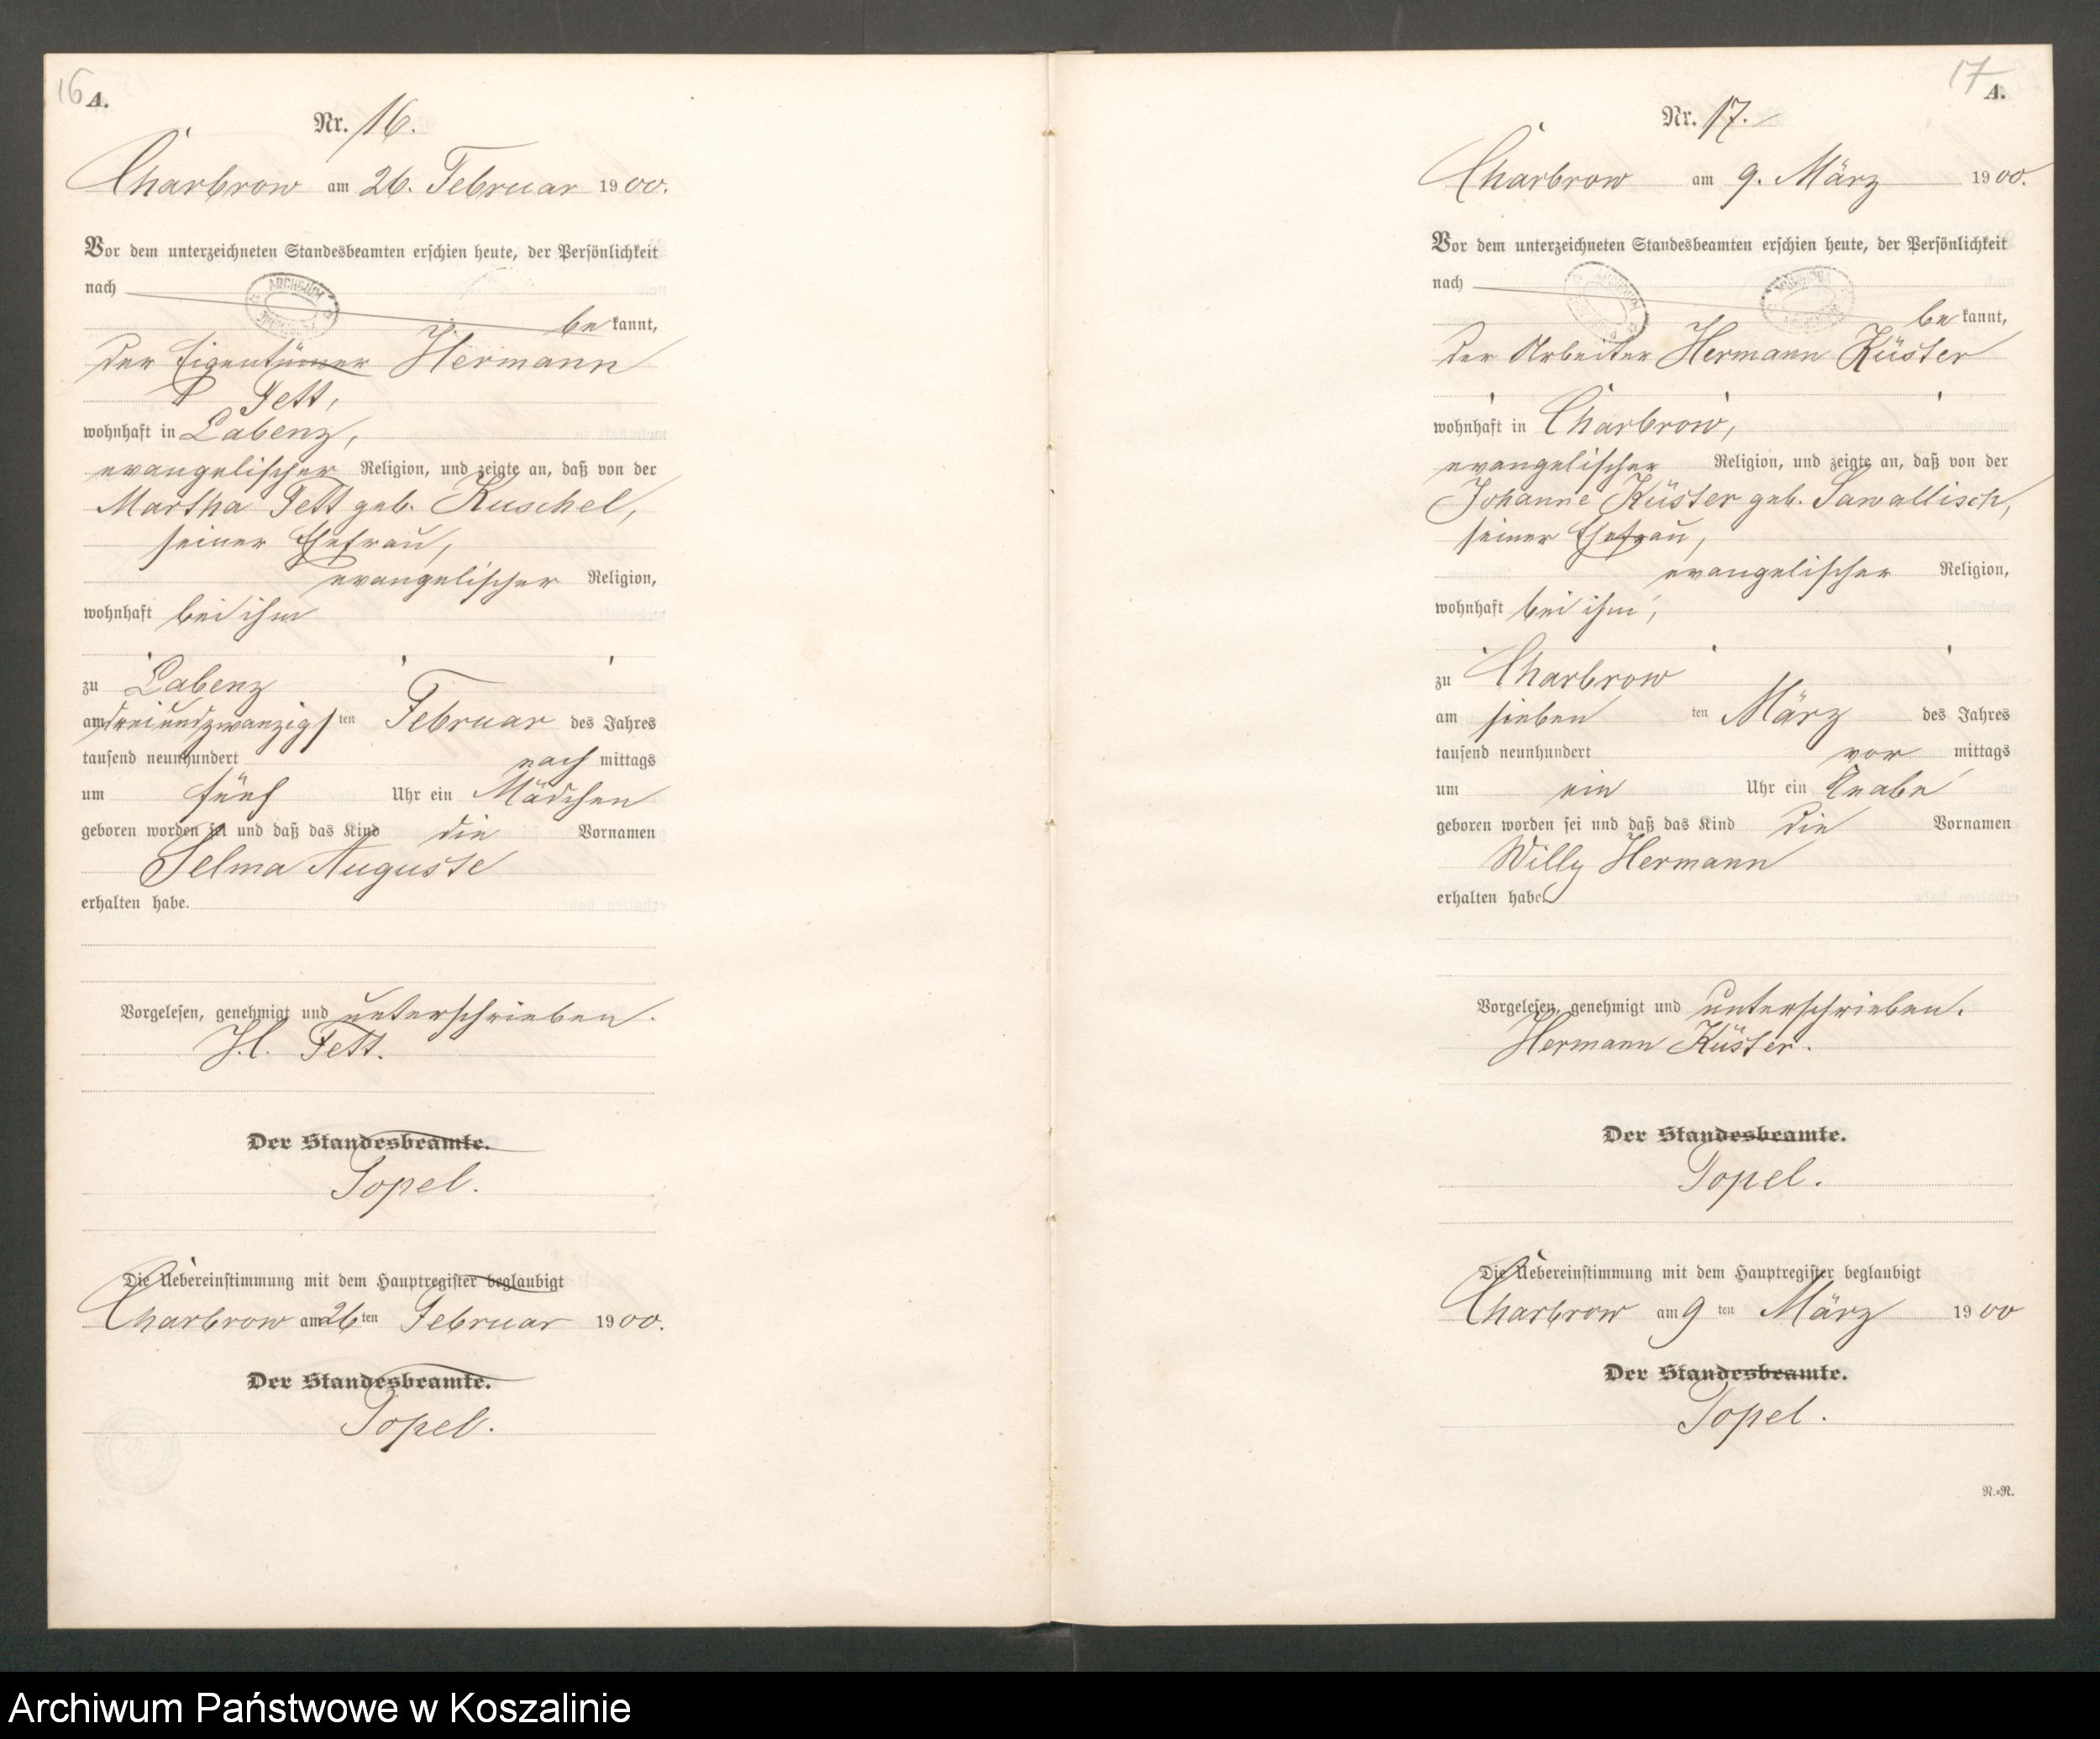 16
A.
Nr. 16.
Charbrow am 26. Februar 1900.
Vor dem unterzeichneten Standesbeamten erschien heute, der Persönlichkeit
nach
be kannt,
der Eigentümer Hermann
Fett,
wohnhaft in Labenz,
evangelischer Religion, und zeigte an, daß von der
Martha Fett geb. Kuschel,
seiner Ehefrau,
evangelischer Religion,
wohnhaft bei ihm
zu Labenz
am dreiundzwanzigsten Februar des Jahres
tausend neunhundert nach mittags
um fünf Uhr ein Mädchen
geboren worden sei und daß das Kind die Vornamen
Selma Auguste
erhalten habe.
Vorgelesen, genehmigt und unterschrieben.
H. Fett.
Der Standesbeamte.
Topel.
Die Uebereinstimmung mit dem Hauptregister beglaubigt
Charbrow am 26ten Februar 1900.
Der Standesbeamte.
Topel.
17
A.
Nr. 17.
Charbrow am 9. März 1900.
Vor dem unterzeichneten Standesbeamten erschien heute, der Persönlichkeit
nach
be kannt,
der Arbeiter Hermann Küster
wohnhaft in Charbrow,
evangelischer Religion, und zeigte an, daß von der
Johanne Küster geb. Sawallisch,
seiner Ehefrau,
evangelischer Religion,
wohnhaft bei ihm,
zu Charbrow
am sieben ten März des Jahres
tausend neunhundert vor mittags
um ein Uhr ein Knabe
geboren worden sei und daß das Kind die Vornamen
Willy Hermann
erhalten habe.
Vorgelesen, genehmigt und unterschrieben.
Hermann Küster.
Der Standesbeamte.
Topel.
Die Uebereinstimmung mit dem Hauptregister beglaubigt
Charbrow am 9 ten März 1900
Der Standesbeamte.
Topel.
N.=R.
Archiwum Państwowe w Koszalinie